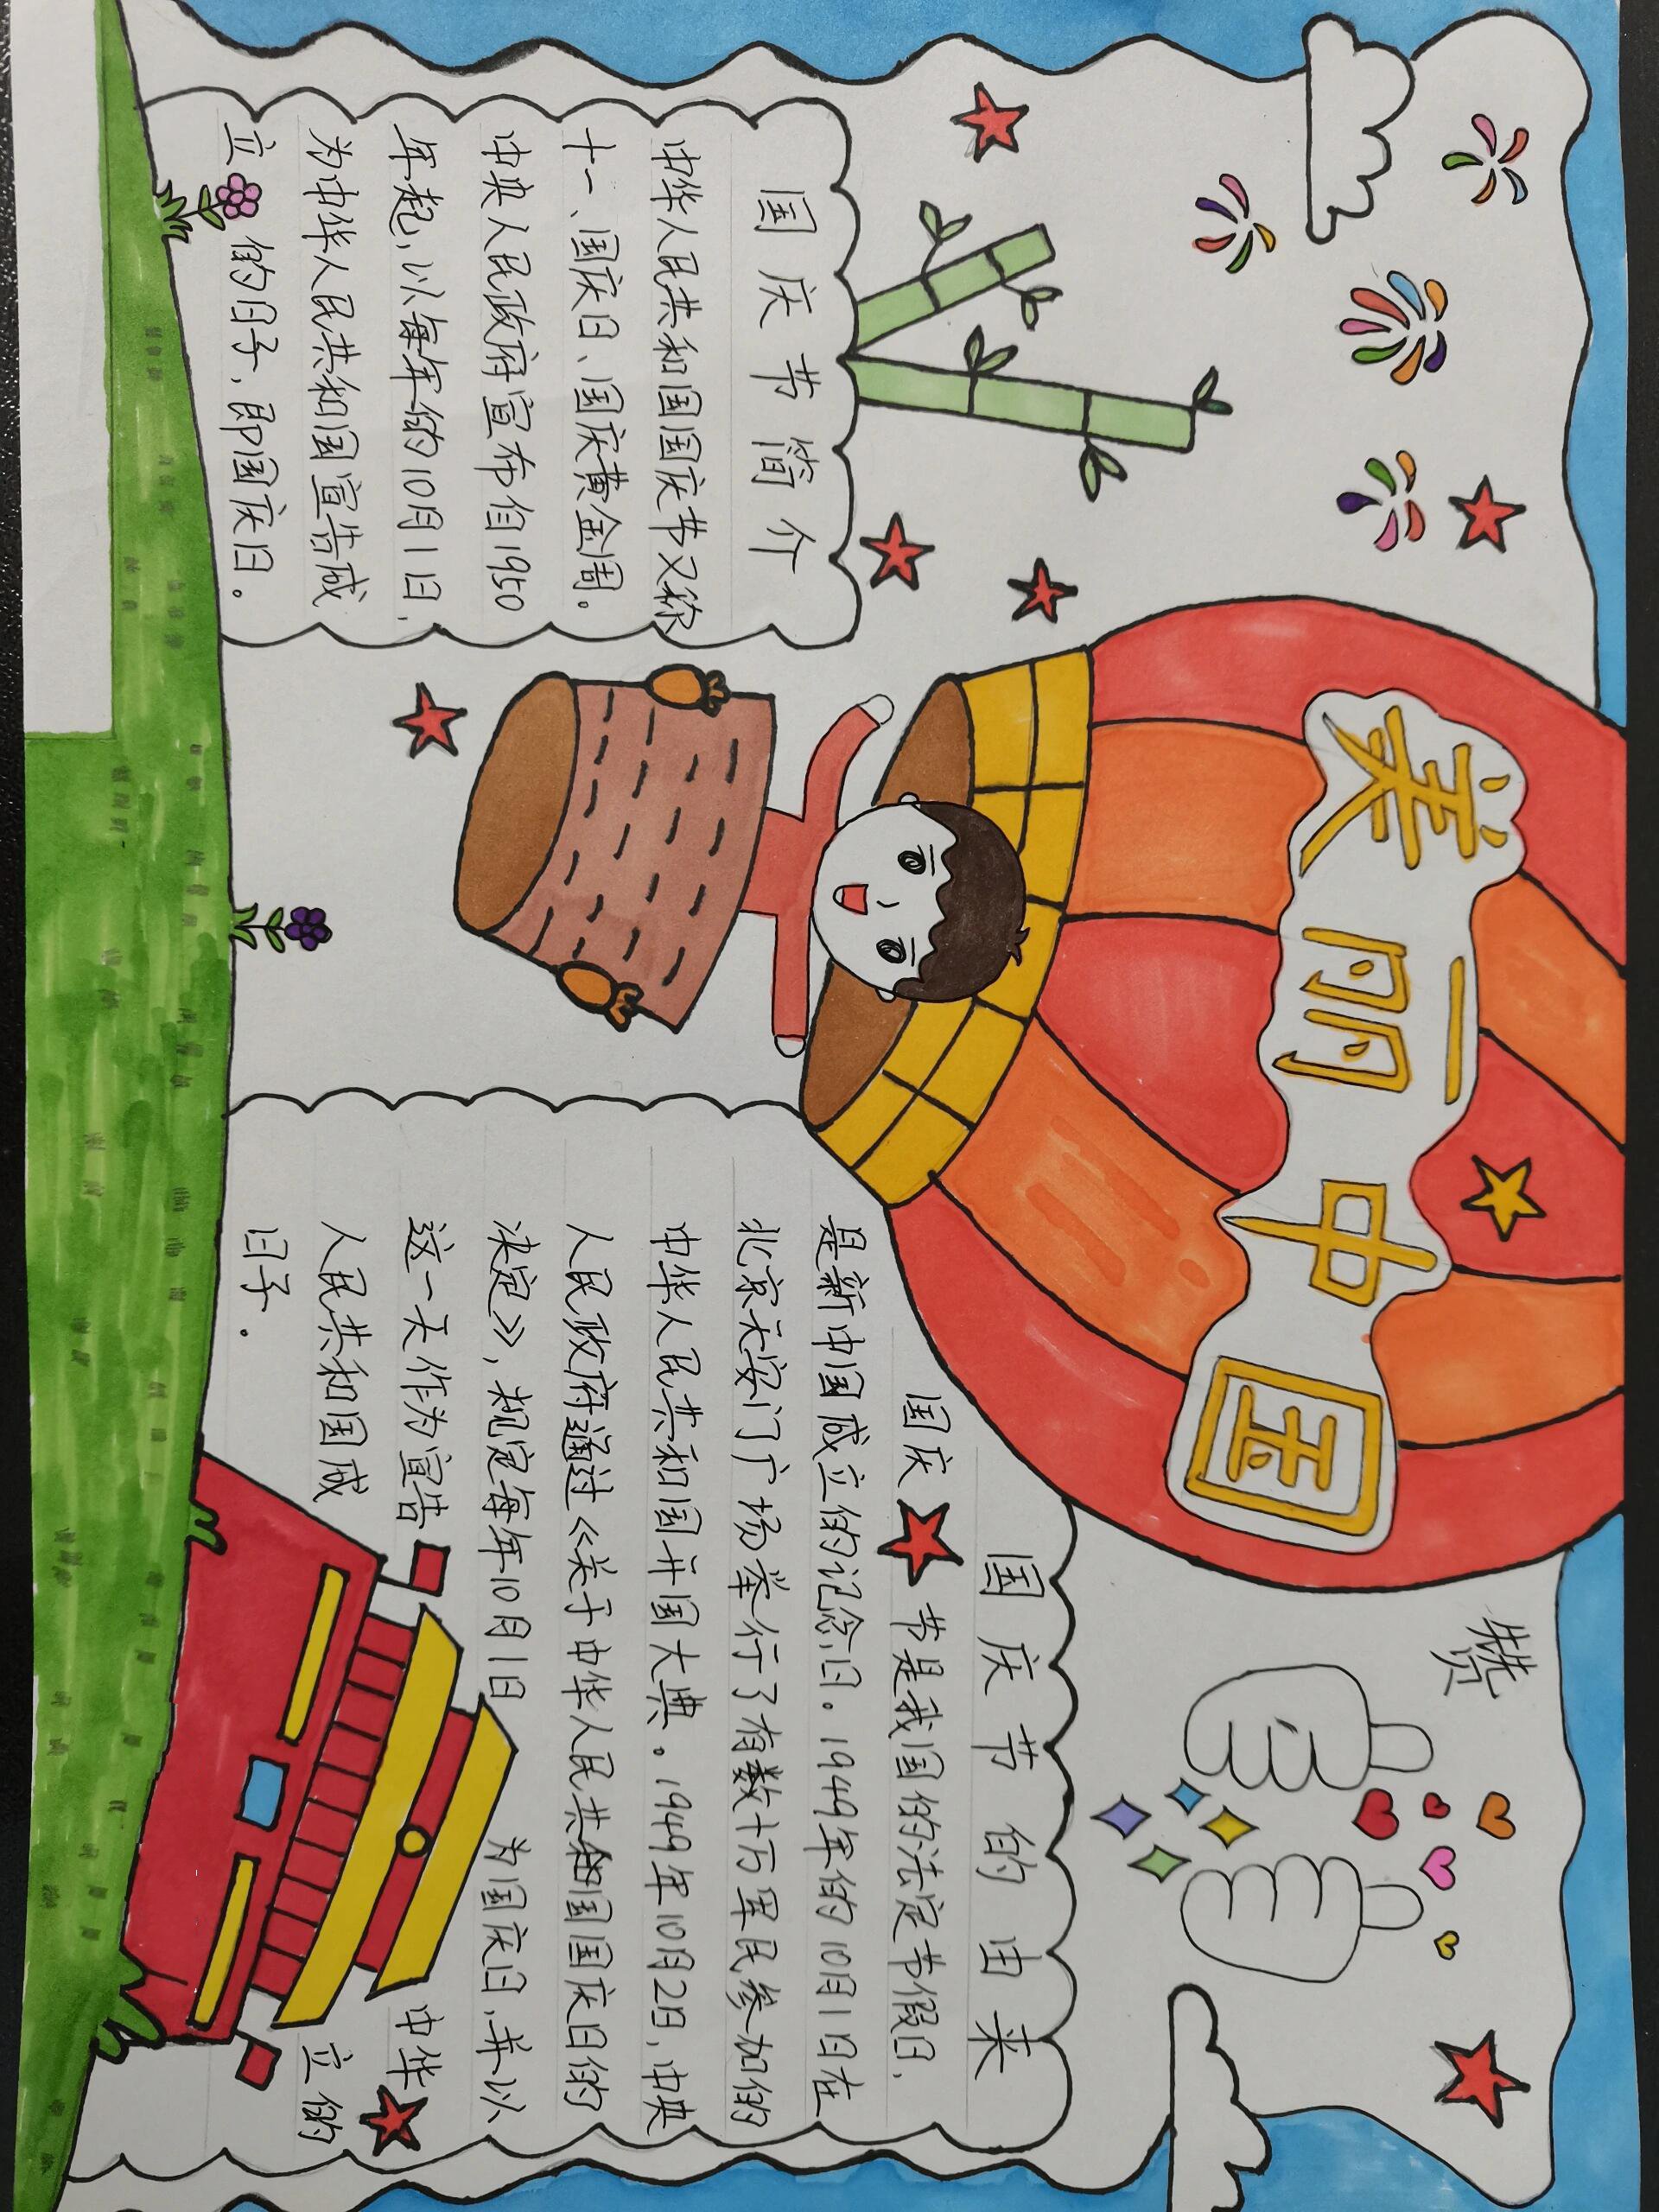 美丽中国
赞
国庆节简介
中华人民共和国国庆节又称
十一、国庆日、国庆黄金周。
中央人民政府宣布自1950
年起,以每年的10月1日,
为中华人民共和国宣告成
立的日子,即国庆日。
国庆节的由来
国庆节是我国的法定节假日,
是新中国成立的记念日。1949年的10月1日在
北京天安门广场举行了有数十万军民参加的
中华人民共和国开国大典。1949年10月2日,中央
人民政府通过《关于中华人民共和国国庆日的
决定》,规定每年10月1日为国庆日,并以
这一天作为宣告中华
人民共和国成立的
日子。